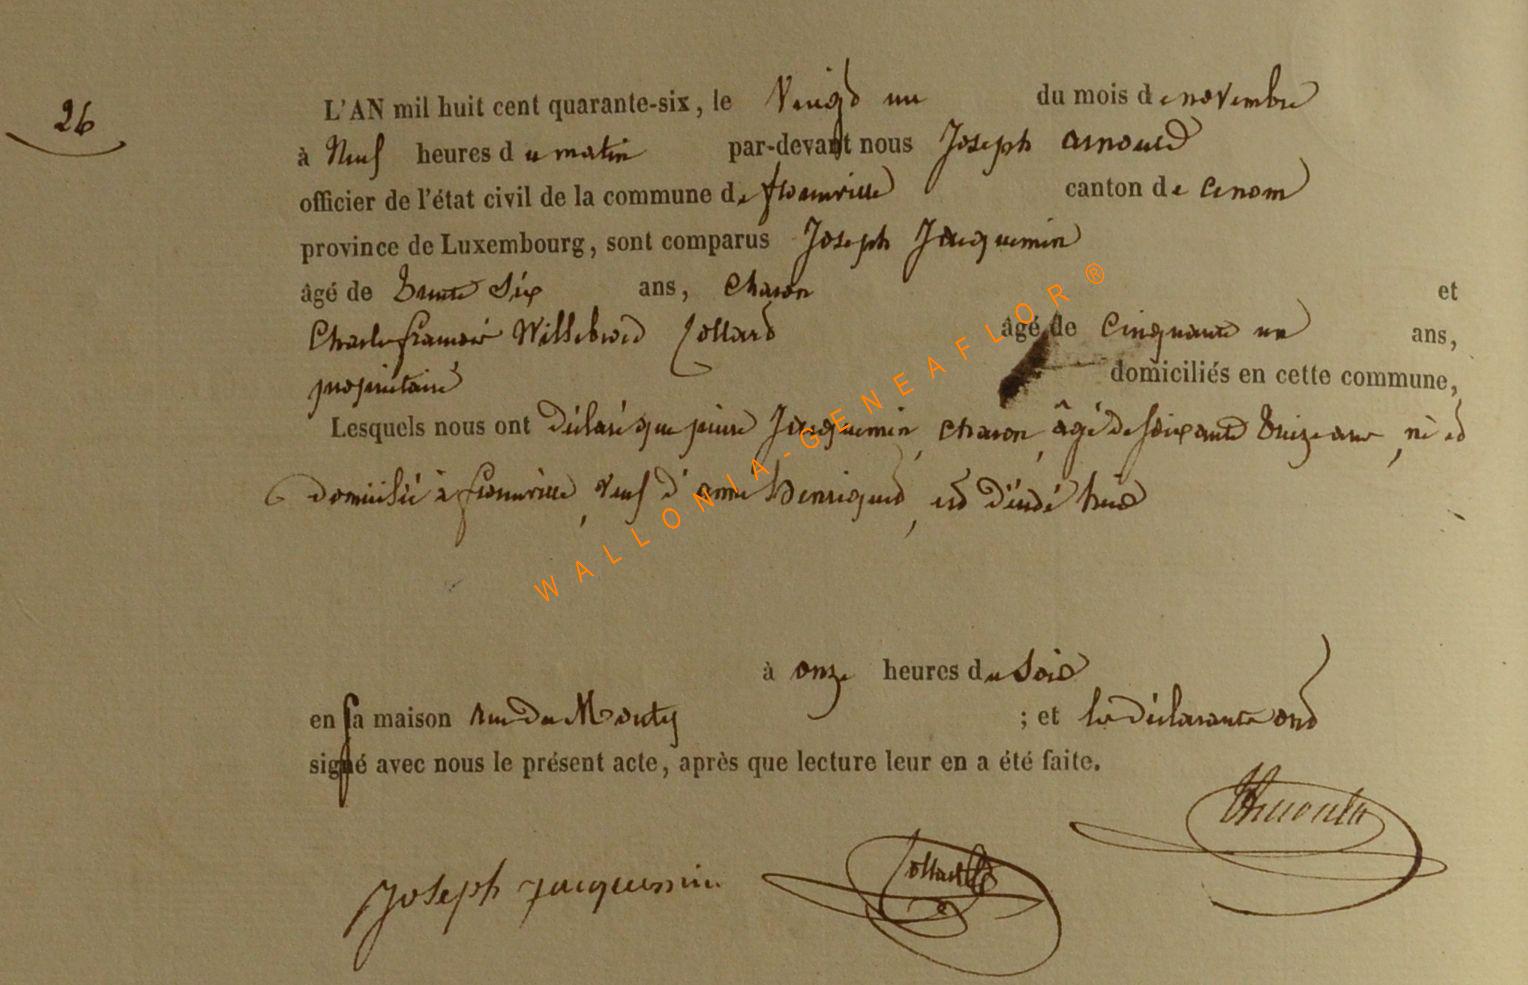 26
L'AN mil huit cent quarante-six, le Vingt un du mois de novembre
à Neuf heures du matin par-devant nous Joseph arnould
officier de l'état civil de la commune de florenville canton de
province de Luxembourg, sont comparus Joseph Jacquemin
âgé de trente Six ans, charon et
Charles françois Willebrord Collard âgé de Cinquante un ans,
propriétaire domiciliés en cette commune,
Lesquels nous ont déclaré que pierre Jacquemin, charon, âgé de soixante treize ans, né et
domicilié à florenville, veuf d'anne henriquet, est décédé hier
à onze heures du Soir
en sa maison rue du ; et les déclarants ont
signé avec nous le présent acte, après que lecture leur en a été faite.
Joseph jacquemin Collard
WALLONIA-GENEAFLOR®